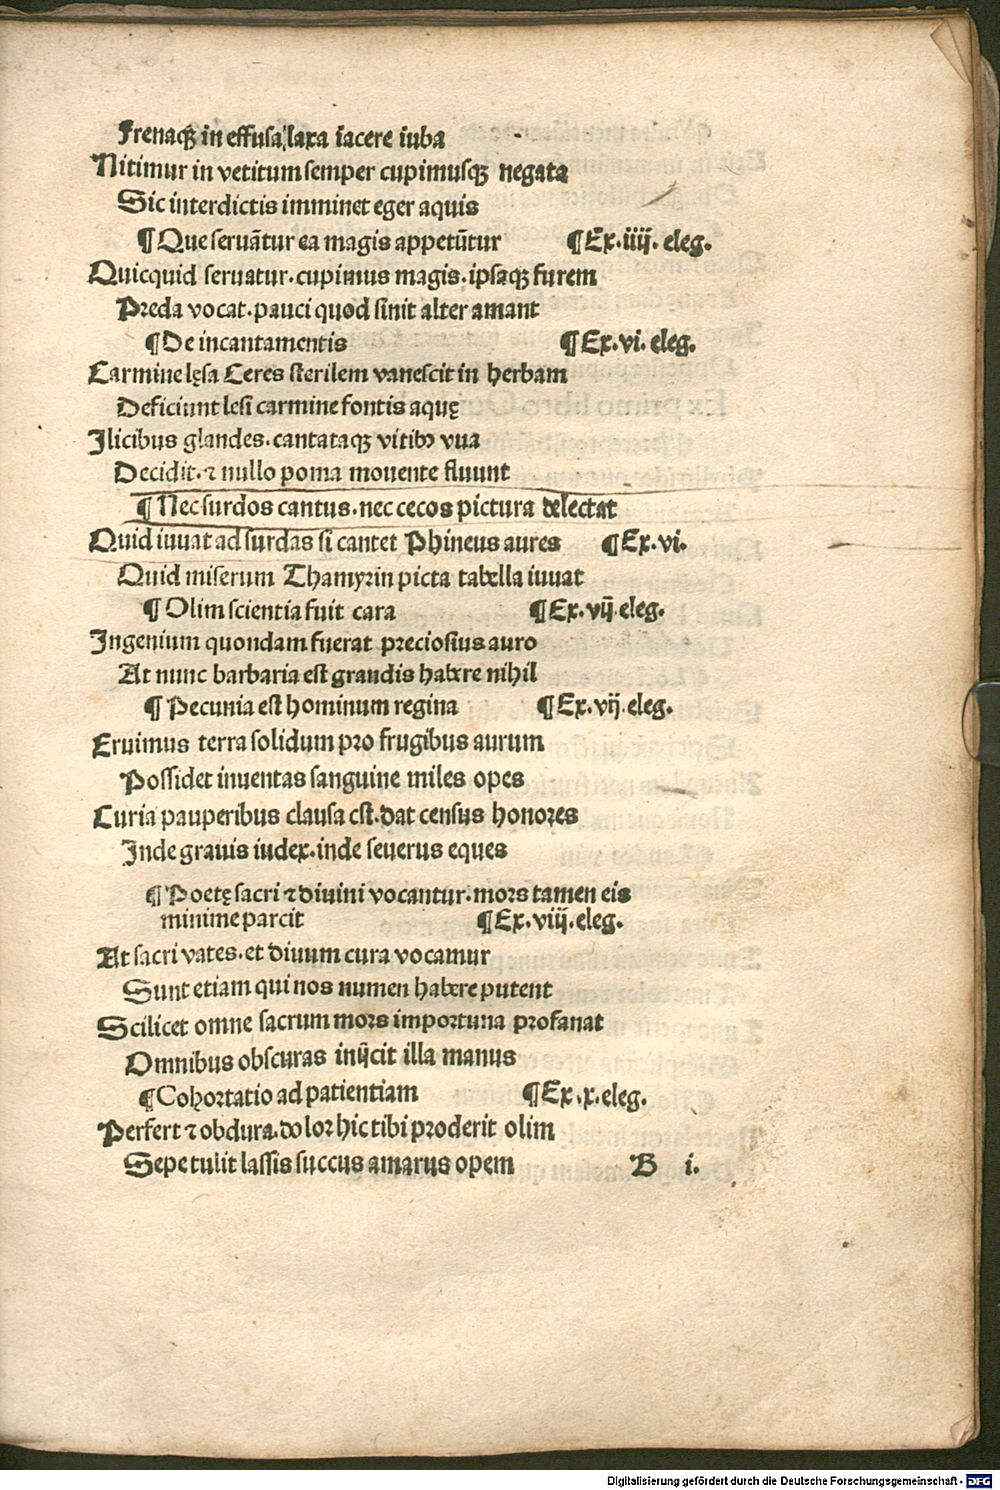 Frenaqꝫ in effusa laxa iacere iuba
Nitimur in vetitum semper cupimusqꝫ negata
Sic interdictis imminet eger aquis
¶ Que seruãtur ea magis appetũtur ¶ Ex. iiij. eleg.
Quicquid seruatur. cupimus magis. ipsaqꝫ furem
Preda vocat. pauci quod sinit alter amant
¶ De incantamentis ¶ Ex. vi. eleg.
Carmine lęsa Ceres sterilem vanescit in herbam
Deficiunt lesi carmine fontis aquę
Ilicibus glandes. cantataqꝫ vitibꝰ vua
Decidit. ⁊ nullo poma mouente fluunt
¶ Nec surdos cantus. nec cecos pictura delectat
Quid iuuat ad surdas si cantet Phineus aures ¶ Ex. vi.
Quid miserum Thamyrin picta tabella iuuat
¶ Olim scientia fuit cara ¶ Ex. vij. eleg.
Ingenium quondam fuerat preciosius auro
At nunc barbaria est grandis habere nihil
¶ Pecunia est hominum regina ¶ Ex. vij. eleg.
Eruimus terra solidum pro frugibus aurum
Possidet inuentas sanguine miles opes
Curia pauperibus clausa est. dat census honores
Inde grauis iudex. inde seuerus eques
¶ Poetę sacri ⁊ diuini vocantur. mors tamen eis
minime parcit ¶ Ex. viij. eleg.
At sacri vates. et diuum cura vocamur
Sunt etiam qui nos numen habere putent
Scilicet omne sacrum mors importuna profanat
Omnibus obscuras inijcit illa manus
¶ Cohortatio ad patientiam ¶ Ex. x. eleg.
Perfert ⁊ obdura. dolor hic tibi proderit olim
Sepe tulit lassis succus amarus opem B i.
Digitalisierung gefördert durch die Deutsche Forschungsgemeinschaft - DFG